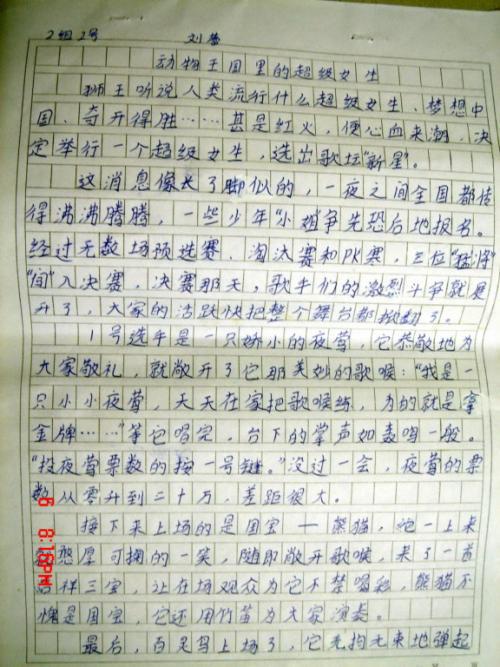 2组2号 刘莹
动物王国里的超级女生
狮王听说人类流行什么超级女生、梦想中
国、夺开得胜……甚是红火，便心血来潮，决
定举行一个超级女生，选出歌坛“新星”。
这消息像长了脚似的，一夜之间全国都传
得沸沸腾腾，一些少年“小姐”争先恐后地报名。
经过无数场预选赛、淘汰赛和PK赛，三位“猛将”
“闯”入决赛，决赛那天，歌手们的激烈斗争就展
开了，大家的活跃快把整个舞台都掀翻了。
1号选手是一只娇小的夜莺，它恭敬地为
大家敬礼，就敞开了它那美妙的歌喉：“我是一
只小小夜莺，天天在家把歌喉练，为的就是拿
金牌……”等它唱完，台下的掌声如轰鸣一般。
“投夜莺票数的按一号键。”没过一会，夜莺的票
数从零升到二十万，差距很大。
接下来上场的是国宝——熊猫，它一上来
憨厚可掬的一笑，随即敞开歌喉，来了一首
吉祥三宝，让在场观众为它不禁喝彩，熊猫不
愧是国宝，它还用竹笛为大家演奏。
最后，百灵鸟上场了，它无拘无束地弹起
6 8:18PM